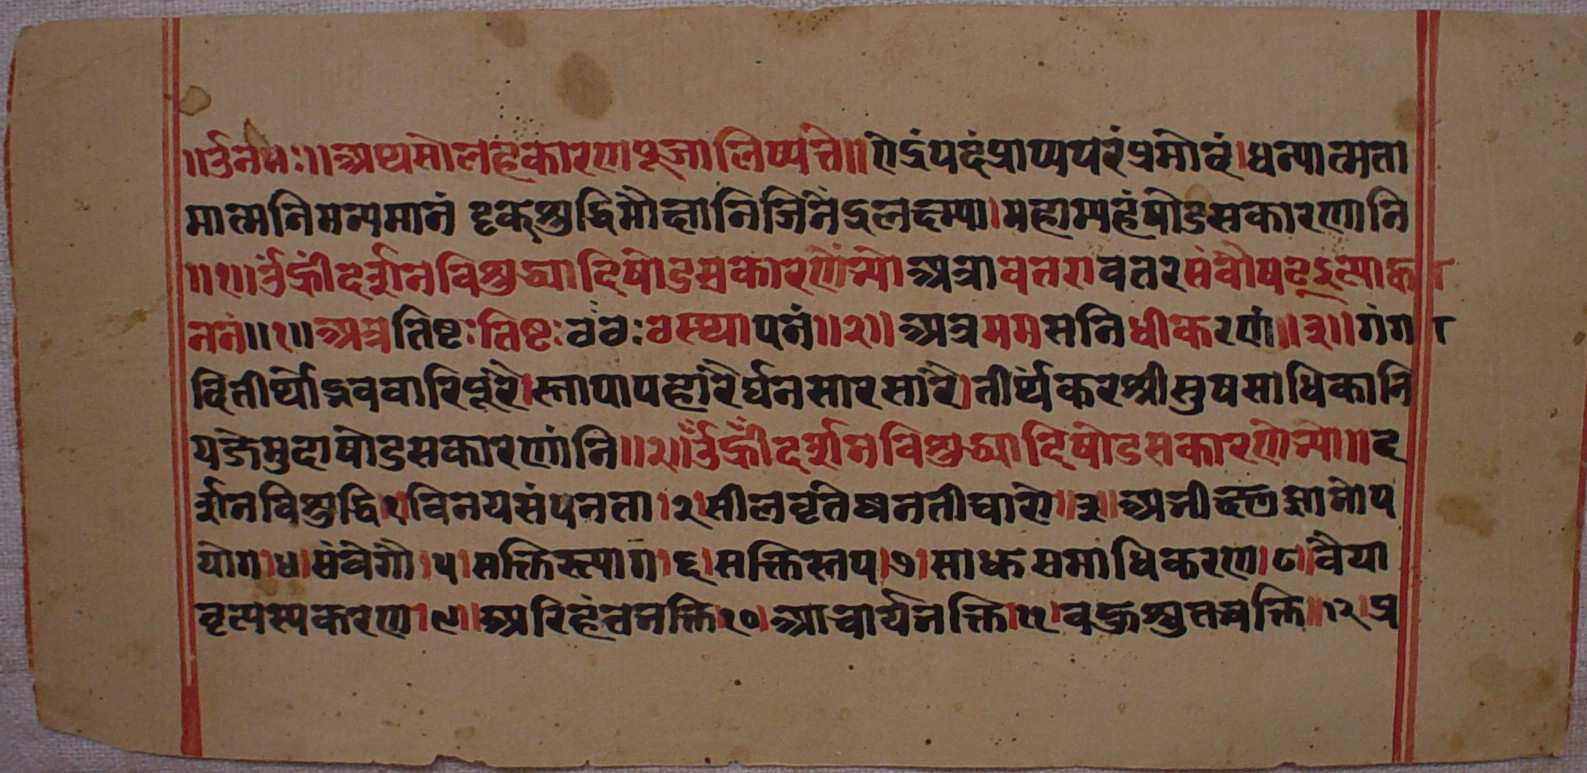 ॥ॐनमः॥अथसोलहकारणपूजालिष्यते॥ऐंद्रंपदंप्राप्यपरंप्रमोदं।धन्यात्मता
मात्मनिमन्यमानं दृक्शुद्धिमौख्यानिजिनेंद्रलक्ष्म्या।महाम्यहंषोडसकारणानि
॥१॥ॐह्रींदर्शनविशुद्ध्यादिषोडसकारणेंभ्योअत्रावतरावतरसंवौषट्इत्याह्वा
ननं॥१॥अत्रतिष्टःतिष्टःठंठःठस्थापनं॥२॥अत्रममसनिधीकरणं॥३॥गंगा
दितीर्थोद्भववारिपूरै।स्नापापहारैर्घनसारसारै।तीर्थंकरश्रीसुषसाधिकानि
यजेमुदाषोडसकारणांनि॥२॥ॐह्रींदर्शनविशुद्ध्यादिषोडसकारणेभ्यो॥द
र्शनविशुद्धि१विनयसंपनता।२।सीलवृतेष्वनतीचारो॥३॥अभीक्ष्णज्ञानोप
योग।४।संवेगौ।५।सक्तिस्त्याग।६।सक्तिस्तप।७।साधुसमाधिकरण।८।वैया
वृत्यस्यकरण।९॥अरिहंतभक्ति१०।आचार्यभक्ति।११।वहुश्रुतभक्ति॥१२।प्र